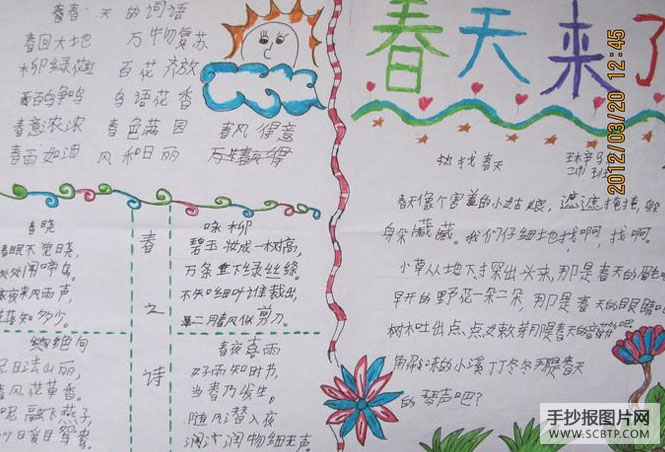 春天的词语
春回大地 万物复苏
柳绿花红 百花齐放
百鸟争鸣 鸟语花香
春意浓浓 春色满园 春风得意
春雨如油 风和日丽
春天来了
2012/03/20 12:45
找春天
春天像个害羞的小姑娘,遮遮掩掩,躲
躲藏藏。我们仔细地找啊,找啊。
小草从地下探出头来,那是春天的眉毛吧
早开的野花一朵二朵,那是春天的眼睛
树木吐出点点嫩芽那是春天的音符吧
解冻的小溪丁丁冬冬那是春天
的琴声吧?
春晓
春眠不觉晓,
处处闻啼鸟。
夜来风雨声,
花落知多少。
春之诗
咏柳
碧玉妆成一树高,
万条垂下绿丝绦。
不知细叶谁裁出,
二月春风似剪刀。
绝句
迟日江山丽,
春风花草香。
泥融飞燕子,
沙暖
春夜喜雨
好雨知时节,
当春乃发生。
随风潜入夜
润物细无声。
手抄报图片网
WWW.SCBTP.COM